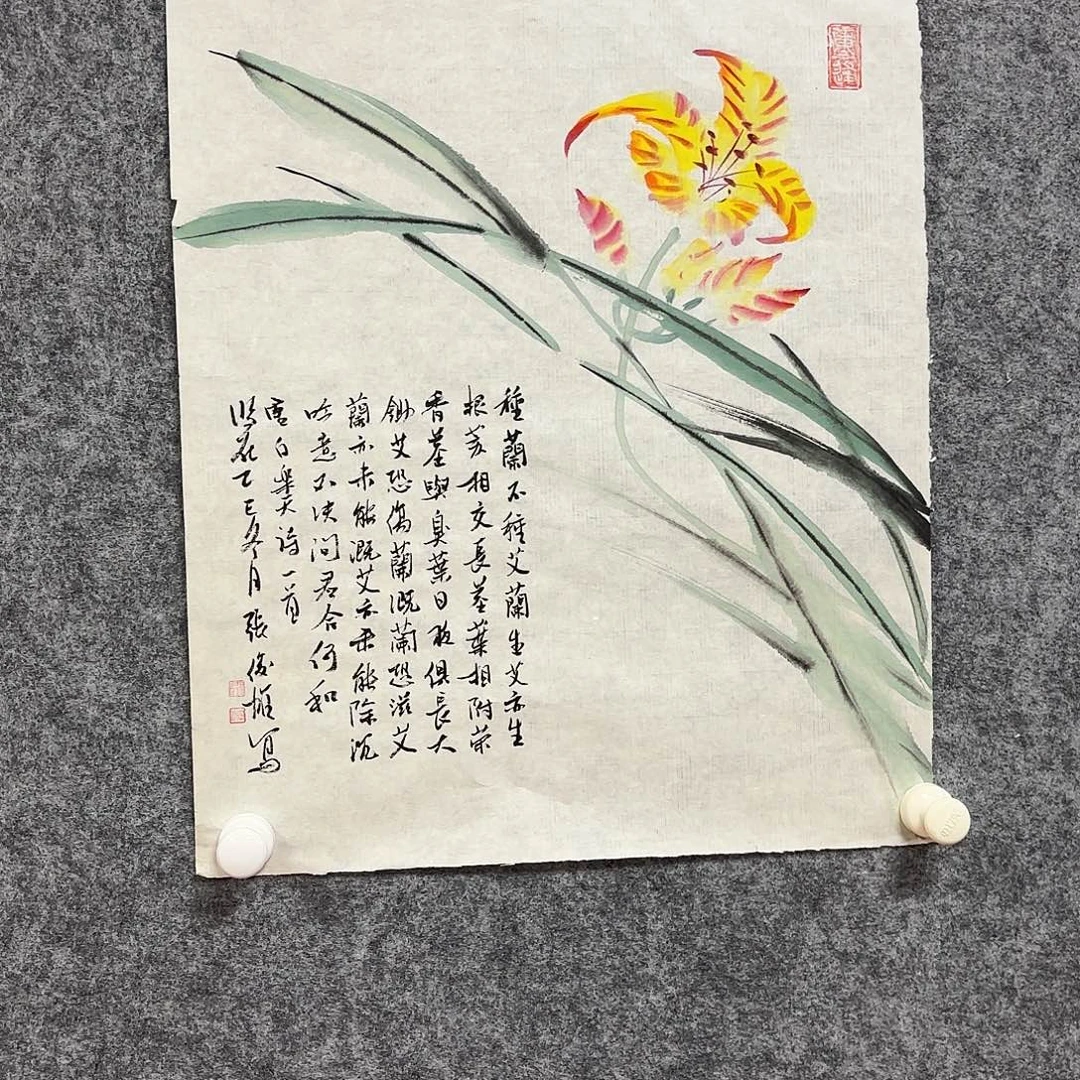 種蘭不種艾蘭生艾亦生
根荄相交長莖葉相附荣
香莖與臭葉日夜俱長大
鋤艾恐傷蘭溉蘭恐滋艾
蘭亦未能溉艾亦未能除沉
吟意不决問君合何和
唐白樂天詩一首
乙巳冬月張俊雄寫